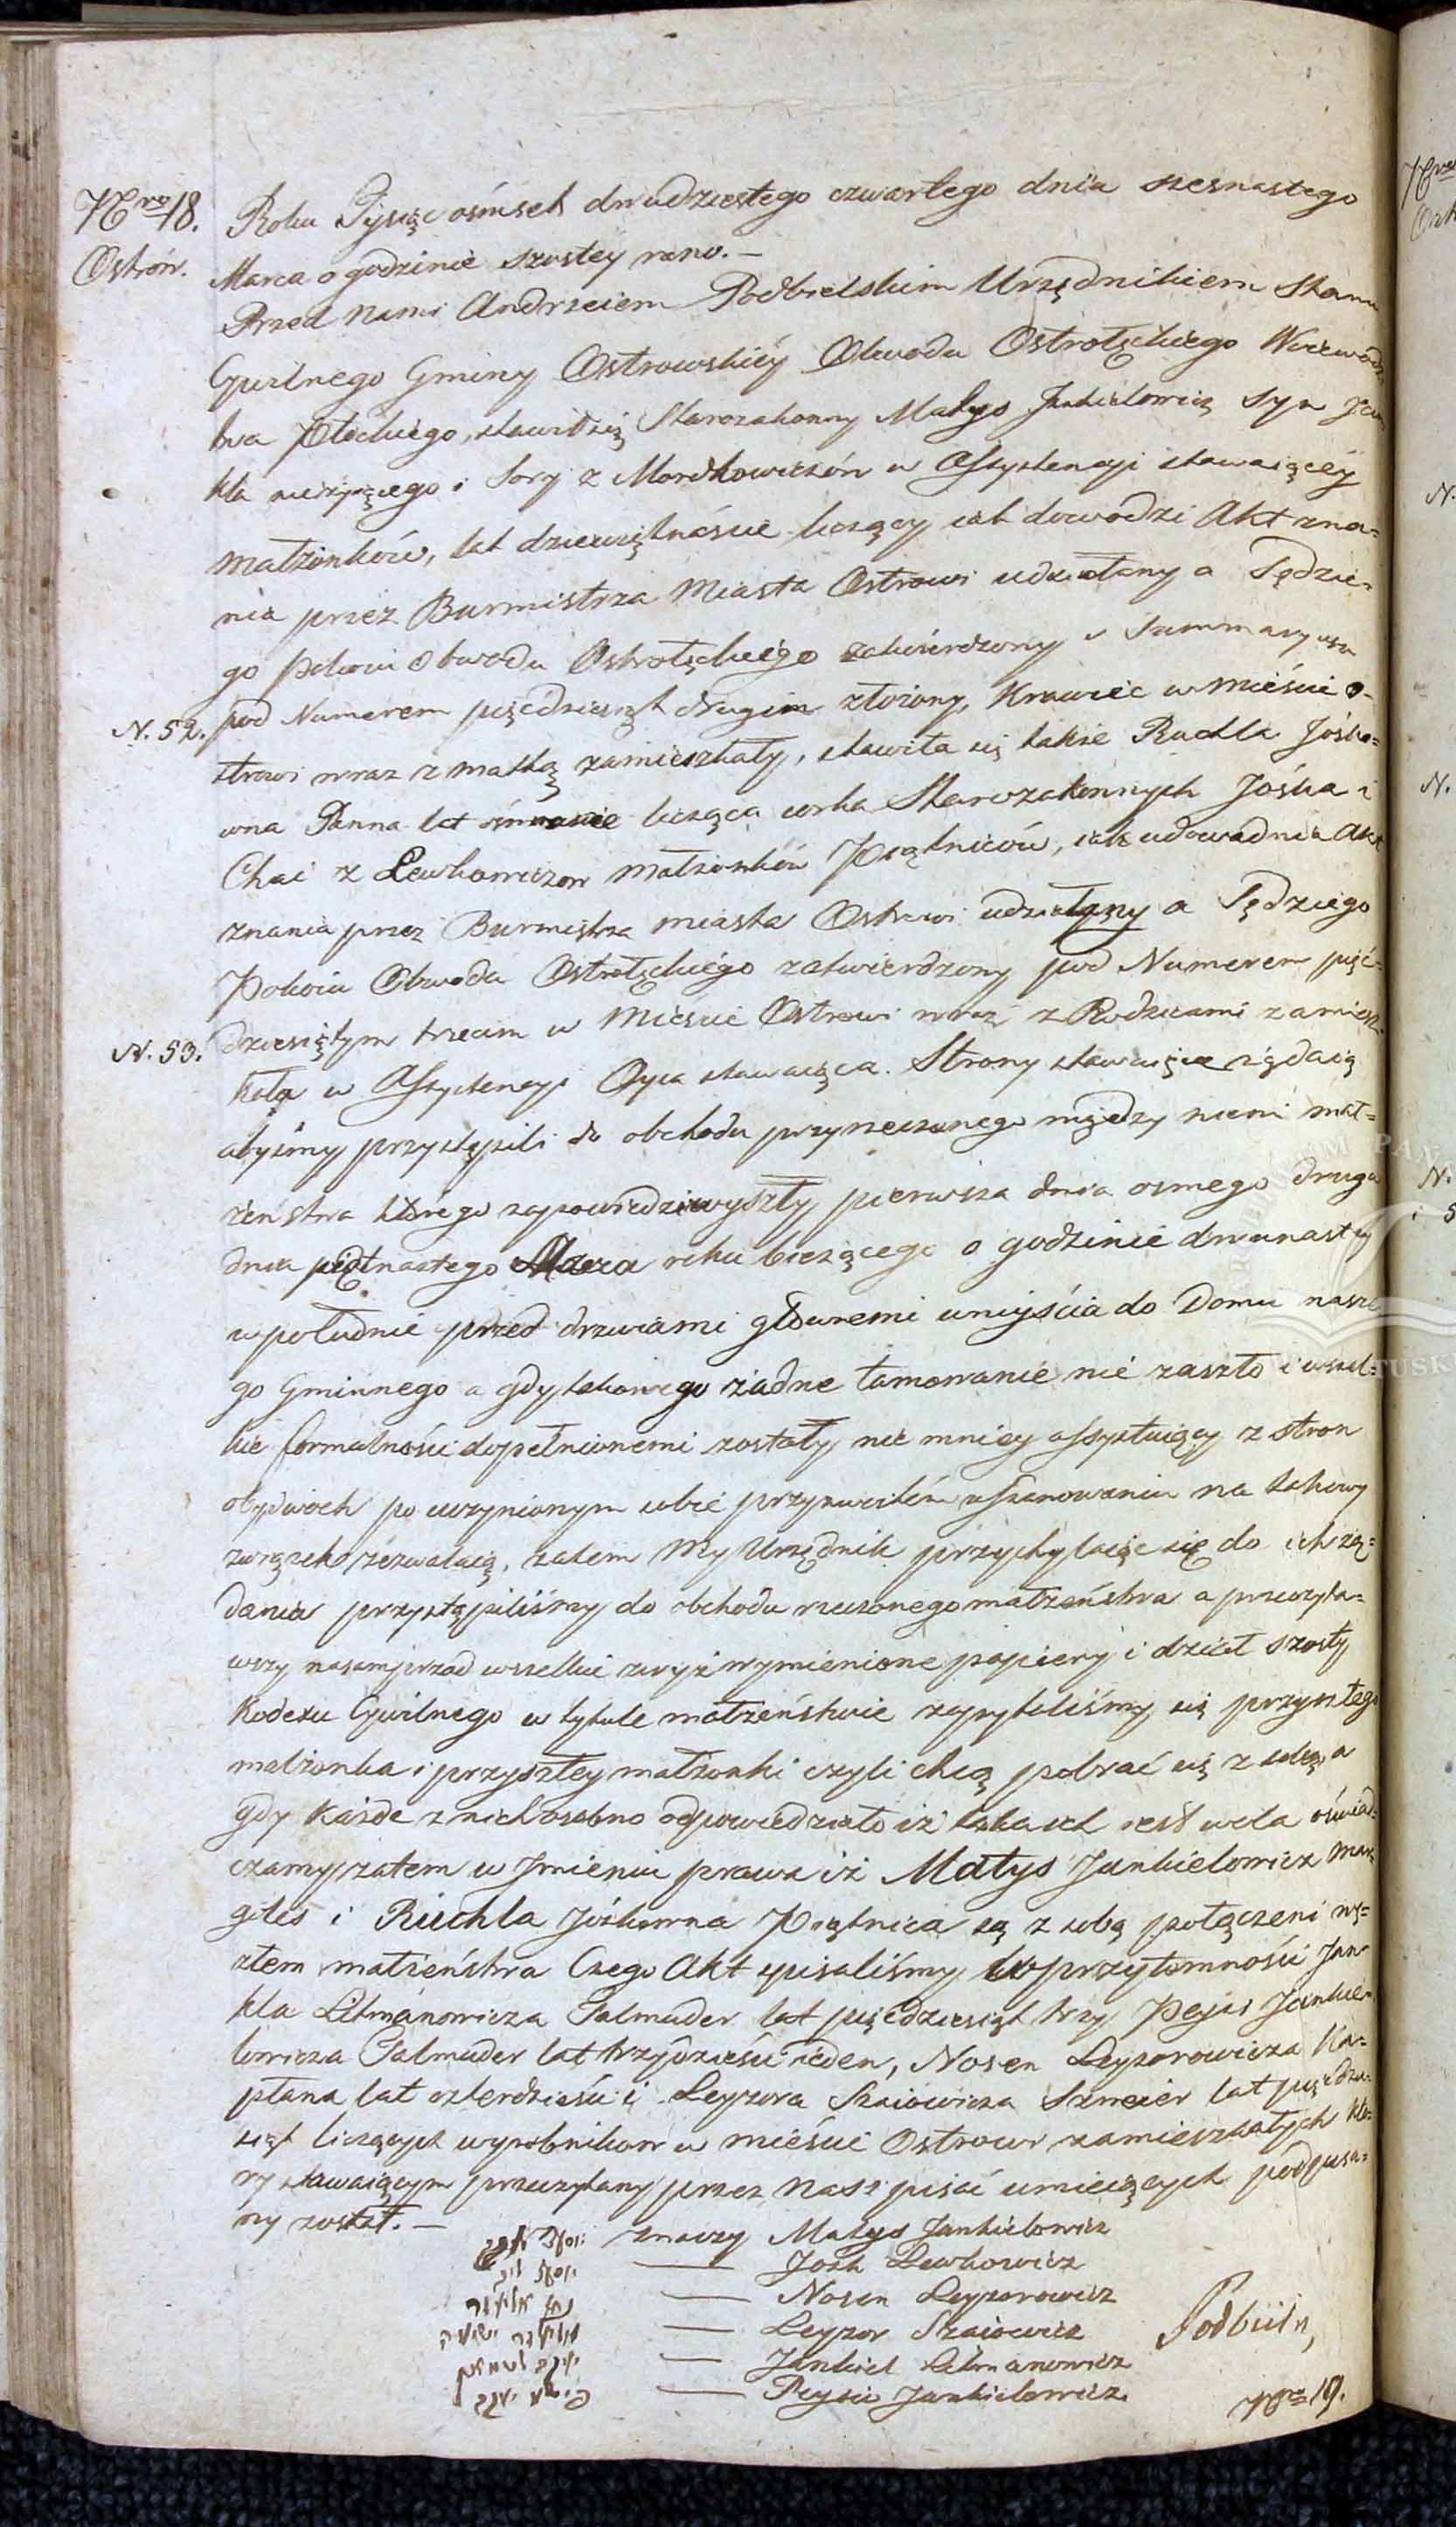 Nro 18.
Ostrów.
Roku Tysiąc ośmset dwudziestego czwartego dnia szesnastego
Marca o godzinie szostey rano. —
Przed nami Andrzeiem Podbielskim Urzędnikiem Stanu
Cywilnego Gminy Ostrowskiéy Obwodu Ostrołęckiego Wojewódz-
twa Płockiego, stawił się Starozakonny Matys Jankielowicz syn Jan
kla nieżyjącego i Sory z Mordkowiczów w Assystencyi stawaiącéy
małżonków, lat dziewiętnaście liczący iak dowodzi Akt zna=
nia przez Burmistrza Miasta Ostrowi udziałany a Sędzie=
go Pokoiu Obwodu Ostrołęckiego zatwierdzony w Summaryuszu
N. 52. pod Numerem pięćdziesiąt drugim złożony, Krawiec w mieście O-
strowi wraz z matką zamieszkały, stawiła się także Ruchla Jośko=
wna Panna lat ośmnaście licząca corka Starozakonnych Jośka i
Chai z Lewkowiczow małżonków Piątniców, iak udowadnia Akt
znania przez Burmistrza miasta Ostrowi udziałany a Sędziego
Pokoiu Obwodu Ostrołęckiego zatwierdzony pod Numerem pięć=
N. 53. dziesiątym trzecim w Mieście Ostrowi wraz z Rodzicami zamiesz-
kała w Assystencyi Oyca stawaiąca. Strony stawaiące rządaią
abyśmy przystąpili do obchodu przyrzeczonego między niemi mał=
żeństwa którego zapowiedzi wyszły pierwsza dnia osmego druga
dnia piętnastego Marca roku bieżącego o godzinie dwunastey
w południe przed drzwiami głównemi wnijścia do Domu nasze
go Gminnego a gdy takowego żadne tamowanie nie zaszło i wszel=
kie formalności dopełnionemi zostały nie mniey assystuiący z stron
obydwóch po uczynionym sobie przyzwoitém uszanowaniu na takowy
związek zezwalaią, zatem My Urzędnik przychylaiąc się do ich żą=
dania przystąpiliśmy do obchodu rzeczonego małżeństwa a przeczyta=
wszy nasamprzod wszelkie zwyż wymienione papiery i dział szosty
Kodexu Cywilnego w tytule małżeństwie zapytaliśmy się przyszłego
małżonka i przyszłey małżonki czyli chcą pobrać się z sobą a
gdy każde z nich osobno odpowiedziało iż taka ich iest wola oświad=
czamy zatem w Jmieniu prawa iż Matys Jankielowicz Mar=
giles i Ruchla Jośkowna Piątnica są z sobą połączeni wę=
złem małżeństwa Czego Akt spisaliśmy w przytomności Jan-
kla Litmanowicza Talmuder lat pięćdziesiąt trzy Peysi Jankie-
lowicza Talmuder lat trzydzieści ieden, Nosen Leyzorowicza Ka-
płana lat czterdzieści i Leyzora Szaiowicza Szmeier lat pięćdzie-
siąt liczących wyrobnikow w mieście Ostrowi zamieszkałych Któ-
ry stawaiącym przeczytany przez nas i pisać umieiących podpisa-
ny został. —
znaczy Matys Jankielowicz
— Josk Lewkowicz
נתן אליעזר — Nosen Leyzorowicz
אליעזר ישעיה — Leyzor Szaiowicz
— Jankiel Litmanowicz
— Peysie Jankielowicz
Nro 19.